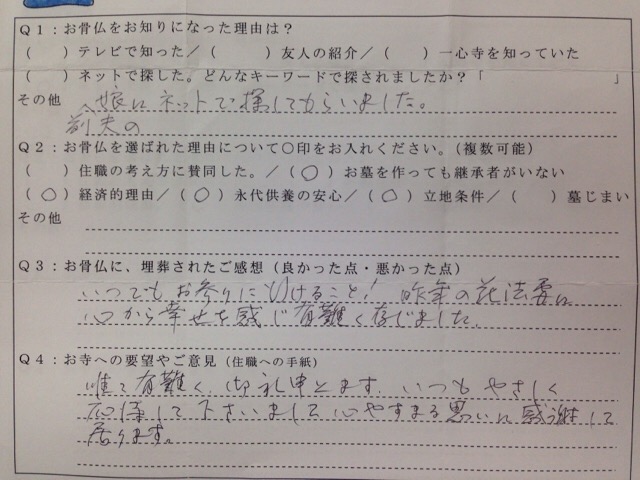 Q1：お骨仏をお知りになった理由は？
（　）テレビで知った／（　　）友人の紹介／（　）一心寺を知っていた
（　）ネットで探した。どんなキーワードで探されましたか？「　　　　　」
その他 娘にネットで探してもらいました。
前夫の
Q2：お骨仏を選ばれた理由について〇印をお入れください。（複数可能）
（　）住職の考え方に賛同した。／（〇）お墓を作っても継承者がいない
（〇）経済的理由／（〇）永代供養の安心／（〇）立地条件／（　）墓じまい
その他
Q3：お骨仏に、埋葬されたご感想（良かった点・悪かった点）
いつでもお参りに行けること！ 昨年の花法要に
心から幸せを感じ有難く存じました。
Q4：お寺への要望やご意見（住職への手紙）
唯々有難く、御礼申上ます。いつもやさしく
応接して下さいまして心やすまる思いに感謝して
居ります。